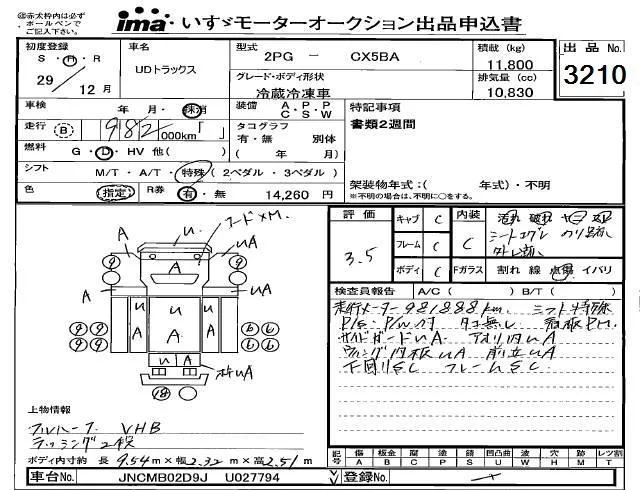 ㊟赤太枠内は必ず
ボールペンで
ご記入下さい。
ima いすゞモーターオークション出品申込書
初度登録
S・H・R
29 12月
車名
UDトラックス
型式
2PG － CX5BA
グレード・ボディ形状
冷蔵冷凍車
積載 (kg)
11,800
排気量 (cc)
10,830
出品 No.
3210
車検 年 月・抹消
装備 A・P・P
C S W
走行 B 982 000km「 」
タコグラフ
有・無 別体
( 年 月)
燃料 G・D・HV 他( )
シフト M/T・A/T・特殊(2ペダル・3ペダル)
色 (指定) R券 有・無 14,260 円
特記事項
書類2週間
架装物年式：( 年式)・不明
※不明の場合は、不明に○をする。
評価 3.5
キャブ C
フレーム C
ボディ C
内装 C
汚れ 破れ
Fガラス 割れ 線 点傷 イバリ
検査員報告 A/C( ) B/T( )
走行メーター981888km シフト特殊
P/S・P/W付 タコ無し
サイドガードuA アオリ内uA
ウィング内板uA 前立uA
下回りSC フレームSC
フードXM.
A
u
uA
A
A
A
uA
u
u
A
A
u
A
uA
18
上物情報
フルハーフ VHB
ラッシング2段
ボディ内寸約 長 9.54m×幅2.32m×高2.51m
記号 傷 板金 腐 塗 錆 凹凸曲 波 穴 跡 レツ割
A B C P S U W H M T
車台No. JNCMB02D9J U027794
登録No.